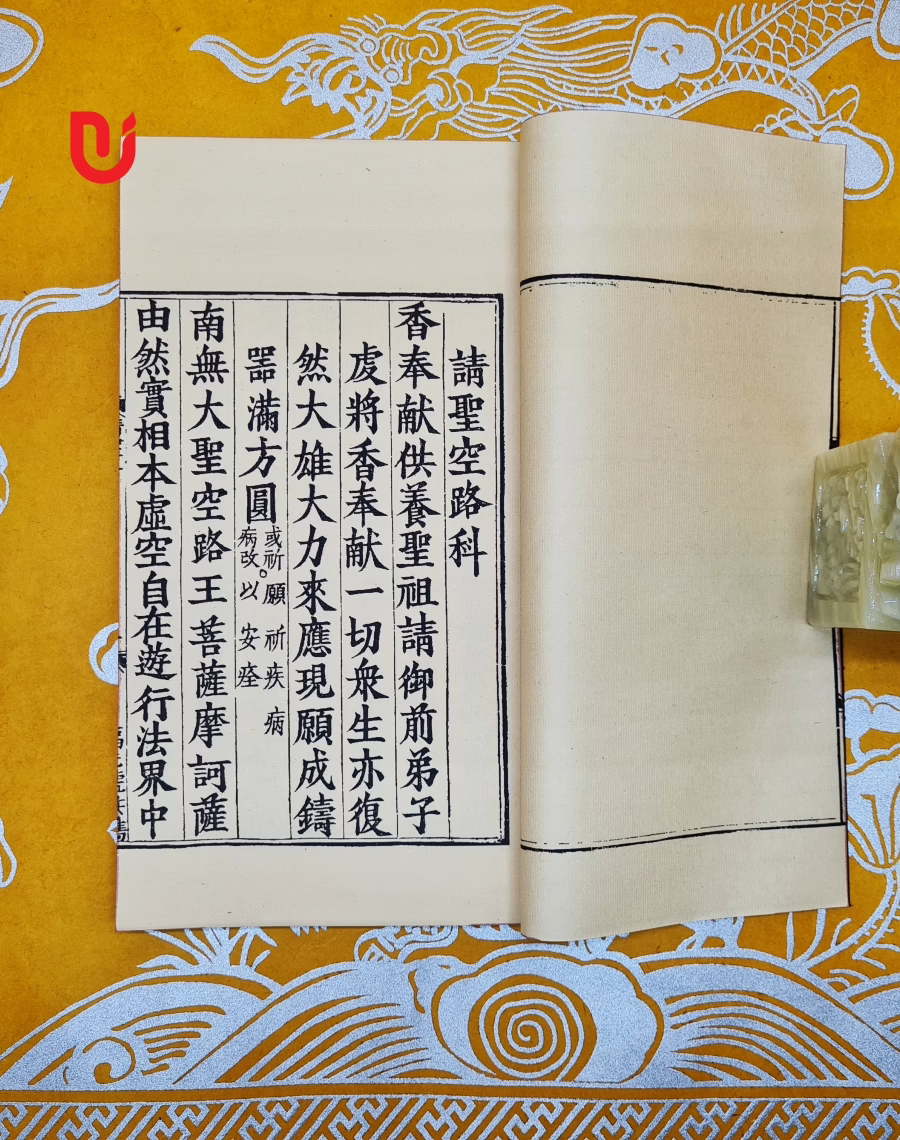 請聖空路科
香奉献供養聖祖請御前弟子
虔將香奉献一切衆生亦復
然大雄大力來應現願成鑄
噐滿方圓
或祈願 祈疾病
病改。以安痊
南無大聖空路王菩薩摩訶薩
由然實相本虛空自在遊行法界中